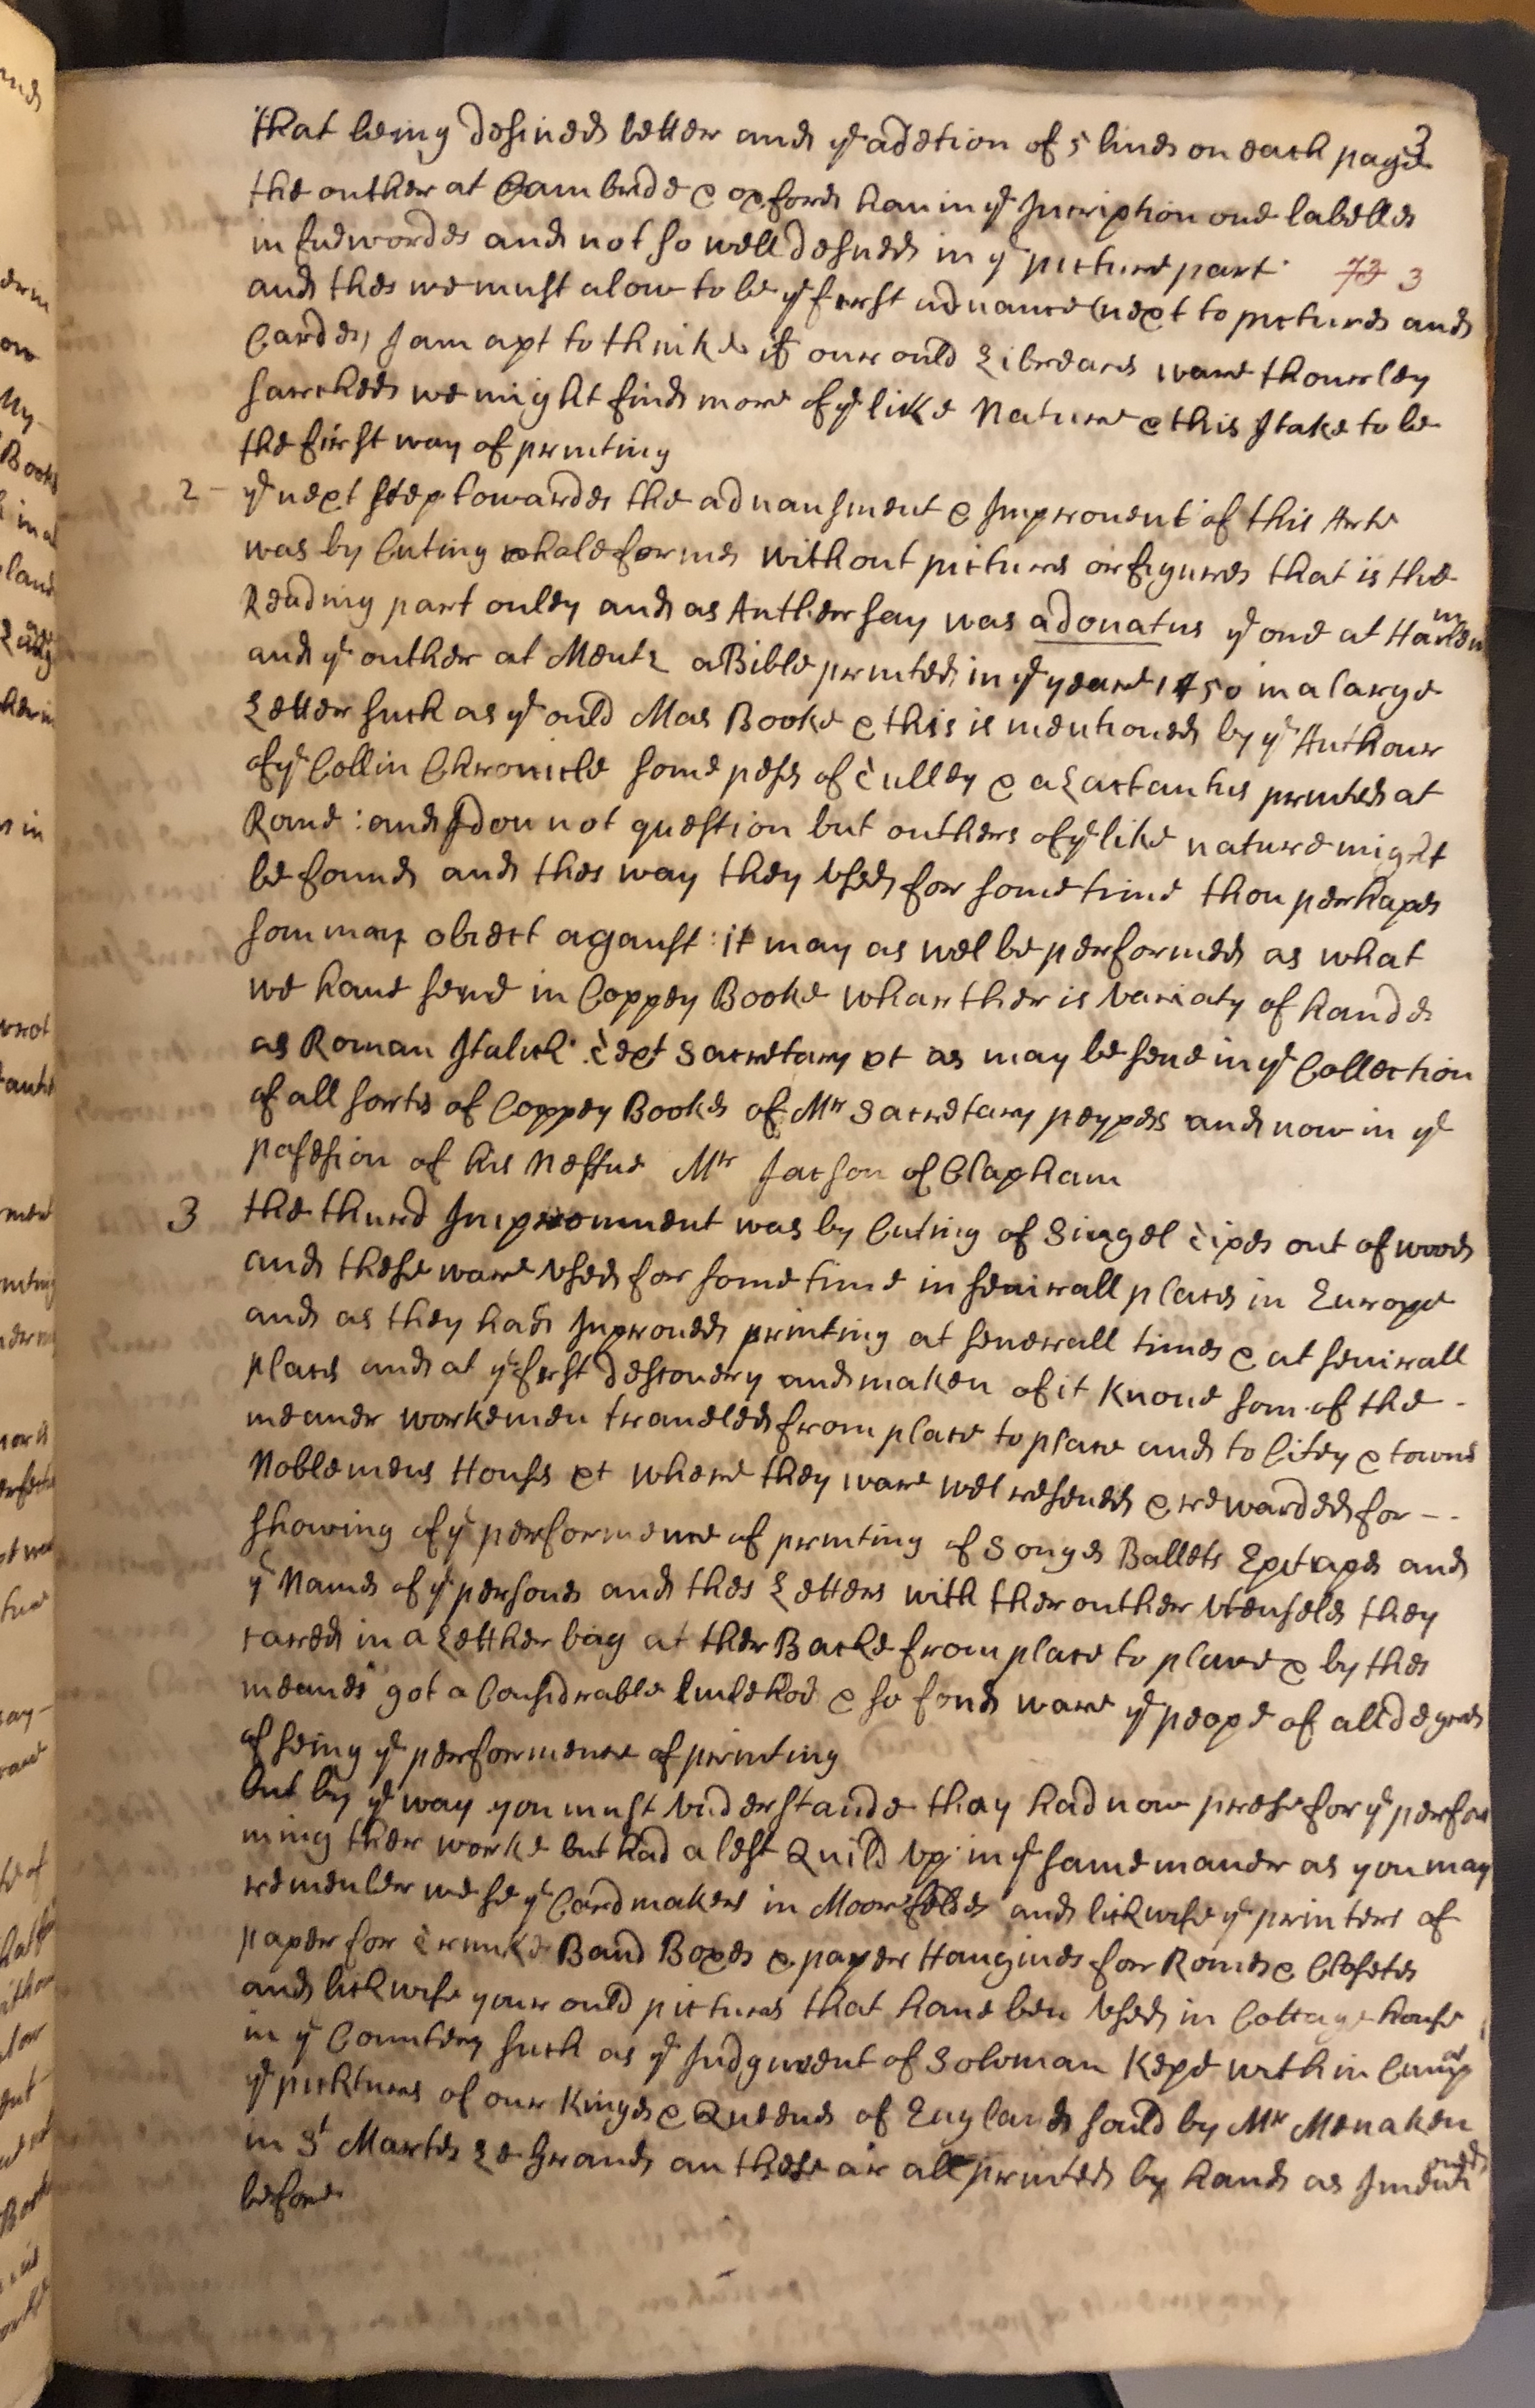 3
that being desined better and yͤ adetion of 5 lines on each page
the outher at Cambrde & oxford hauin yͤ Inscription one labelles
in fue wordes and not so well desned in yͤ picture part
73 3
and thes we must alow to be yͤ furst aduance (next to pictures and
Cardes) I am apt to thinke if our ould Librearis ware thourley
sarched we might find more of yͤ like Nature & this I take to be
the first way of printing
2 - yͤ next step towardes the aduansment & Improuent of this Arte
was by Cuting whole formes without pictures or figures that is the
Reading part onley and as Auther say was adonatus yͤ one at Harlem
and yͤ outher at Mentz a Bible printed in yͤ yeare 1450 in a large
Letter such as yͤ ould Mas Booke & this is mentioned by yͤ Authour
of yͤ Collin Chronicle some peses of Tulley & a Lactantus printed at
Rome : and I dou not question but outhers of yͤ like nature might
be found and thes way they Vsed for some time thou perhapes
som may obiect aganst : it may as wel be performed as what
we haue sene in Coppey Booke whar ther is Variaty of handes
as Roman Italick Text Sacretary et as may be sene in yͤ Collection
of all sortes of Coppey Bookes of Mr Sacretary peypes and now in yͤ
posesion of his Neffue Mr Jacson of Clapham
3 the thurd Improumment was by Cuting of Singel Tipes out of wood
and these ware Vsed for some time in seuirall places in Europe
and as they had Improued printing at seuerall times & at seuirall
places and at yͤ first descouery and maken of it knone som of the -
meaner workemen traueled from place to place and to Citey & towns
Noblemens Houses et where they ware wel reseued & rewarded for - -
showing of yͤ performence of printing of Songes Ballets Epitapes and
yͤ Names of yͤ persones and thes Letters with ther outher Vtensels they
cared in a Letther bag at ther Backe from place to place & by thes
meanes got a Considrable liulehod & so fond ware yͤ peope of all degres
of seing yͤ performence of printing
but by yͤ way you must Vnderstande thay had now prese for yͤ perfor
ming ther worke but had a lest Quild Vp in yͤ same maner as you may
remember we se yͤ Cardmakers in Moorfeldes and lickwise yͤ printers of
paper for Trunkes Band Boxes & paper Hanginges for Romes & Closetes
and lickwise your ould pictures that haue ben Vsed in Cottage house
in yͤ Countery such as yͤ Judgment of Soloman Kepe within Cumpas
yͤ pickturs of our Kinges & Queenes of England sould by Mr Menaken
in St Martes Le Grand an these ar all printed by hand as I mentioned
before